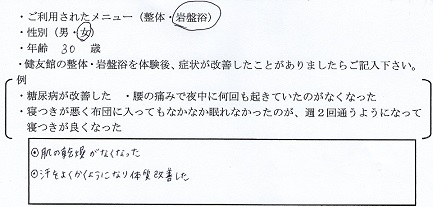 ・ご利用されたメニュー（整体・岩盤浴）
・性別（男・女）
・年齢 30 歳
・健友館の整体・岩盤浴を体験後、症状が改善したことがありましたらご記入下さい。
例
・糖尿病が改善した ・腰の痛みで夜中に何回も起きていたのがなくなった
・寝つきが悪く布団に入ってもなかなか眠れなかったのが、週２回通うようになって
寝つきが良くなった
◎肌の乾燥がなくなった
◎汗をよくかくようになり体質改善した